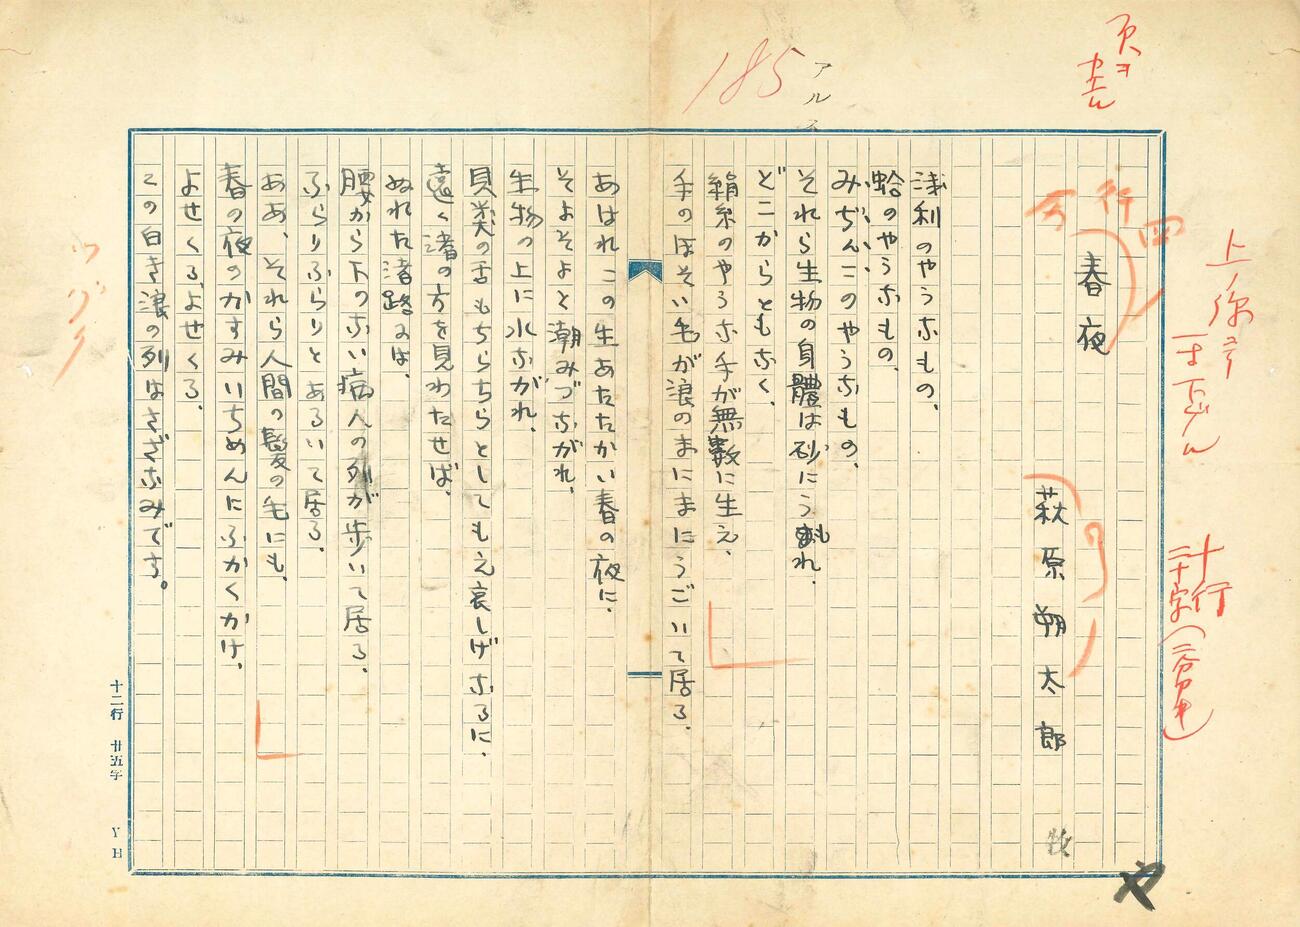 頁ヲ
書ん
アルス
185
上ノ線ヨリ
十行
二十字（二分中）
四行アキ
春夜
萩原朔太郎
牧
浅利のやうなもの、
蛤のやうなもの、
みぢんこのやうなもの、
それら生物の身體は砂にうもれ、
どこからともなく、
絹糸のやうな手が無數に生え、
手のほそい毛が浪のまにまにうごいて居る、
あはれこの生あたたかい春の夜に、
そよそよと潮みづながれ、
生物の上に水ながれ、
貝类の舌もちらちらとしてもえ哀しげなるに、
遠く渚の方を見わたせば、
ぬれた渚路には、
腰から下のない病人の列が歩いて居る、
ふらりふらりとあるいて居る、
ああ、それら人間の髪の毛にも、
春の夜のかすみいちめんにふかくかけ、
よせくる、よせくる、
この白き浪の列はさざなみです。
ツヅク
十二行 廿五字 YH